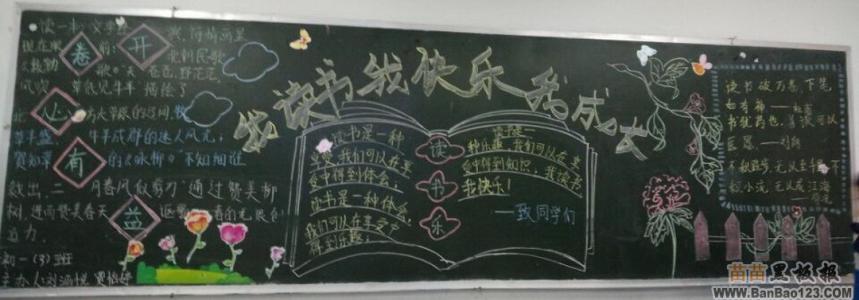 我读书我快乐我成长
开
卷
有
益
读一本文学
我,诗情画意
北朝民歌
歌"天苍苍,野茫茫,
风吹草低见牛羊"描绘了
牛羊成群的迷人风光,
贺知章的《咏柳》"不知细叶谁
裁出,二月春风似剪刀"通过赞美柳
树,进而赞美春天
初一(3)班
读书是一种
享受,我们可以在享
受中得到体会,
读书是一种体会,
我们可以在享受中
得到乐趣,
读
书
乐
读书是一
种乐趣,我们可以在享
受中得到知识,我读书
我快乐!
——致同学们
读书破万卷,下笔
如有神——杜甫
书犹药也,善读可以
医愚——刘向
不积跬步,无以至千里,不
积小流,无以成江海
——荀况
苗苗黑板报
www.BanBao123.com